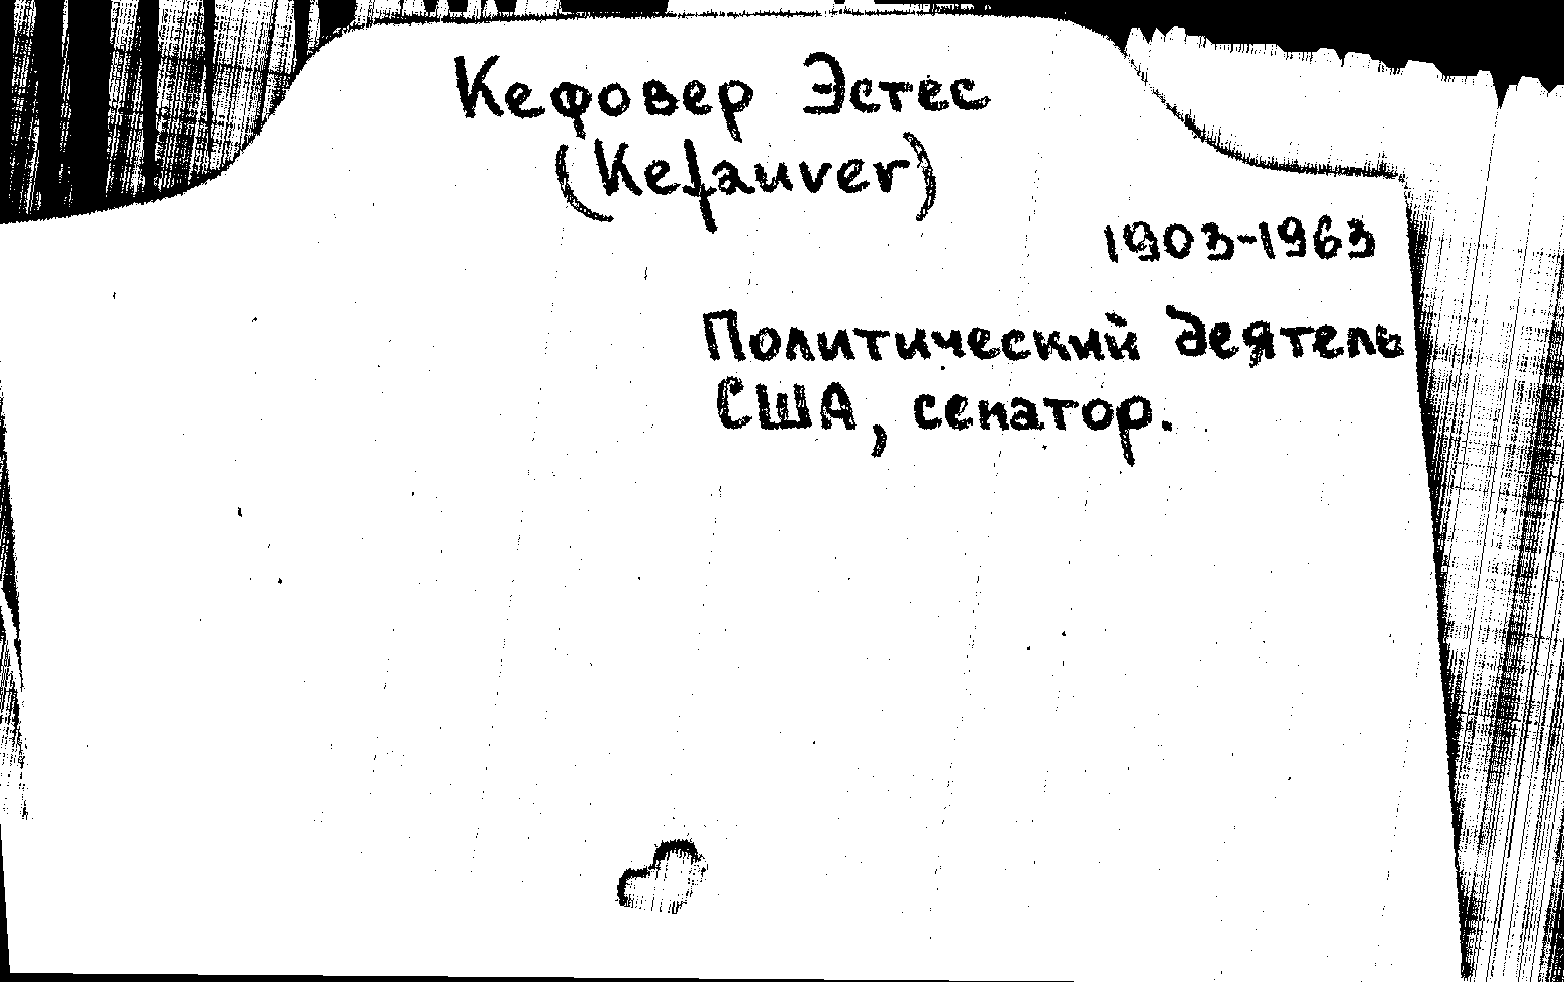 Кефовер Эстес
(Kefauver)
1903-1963
Политический деятель
США, сенатор.